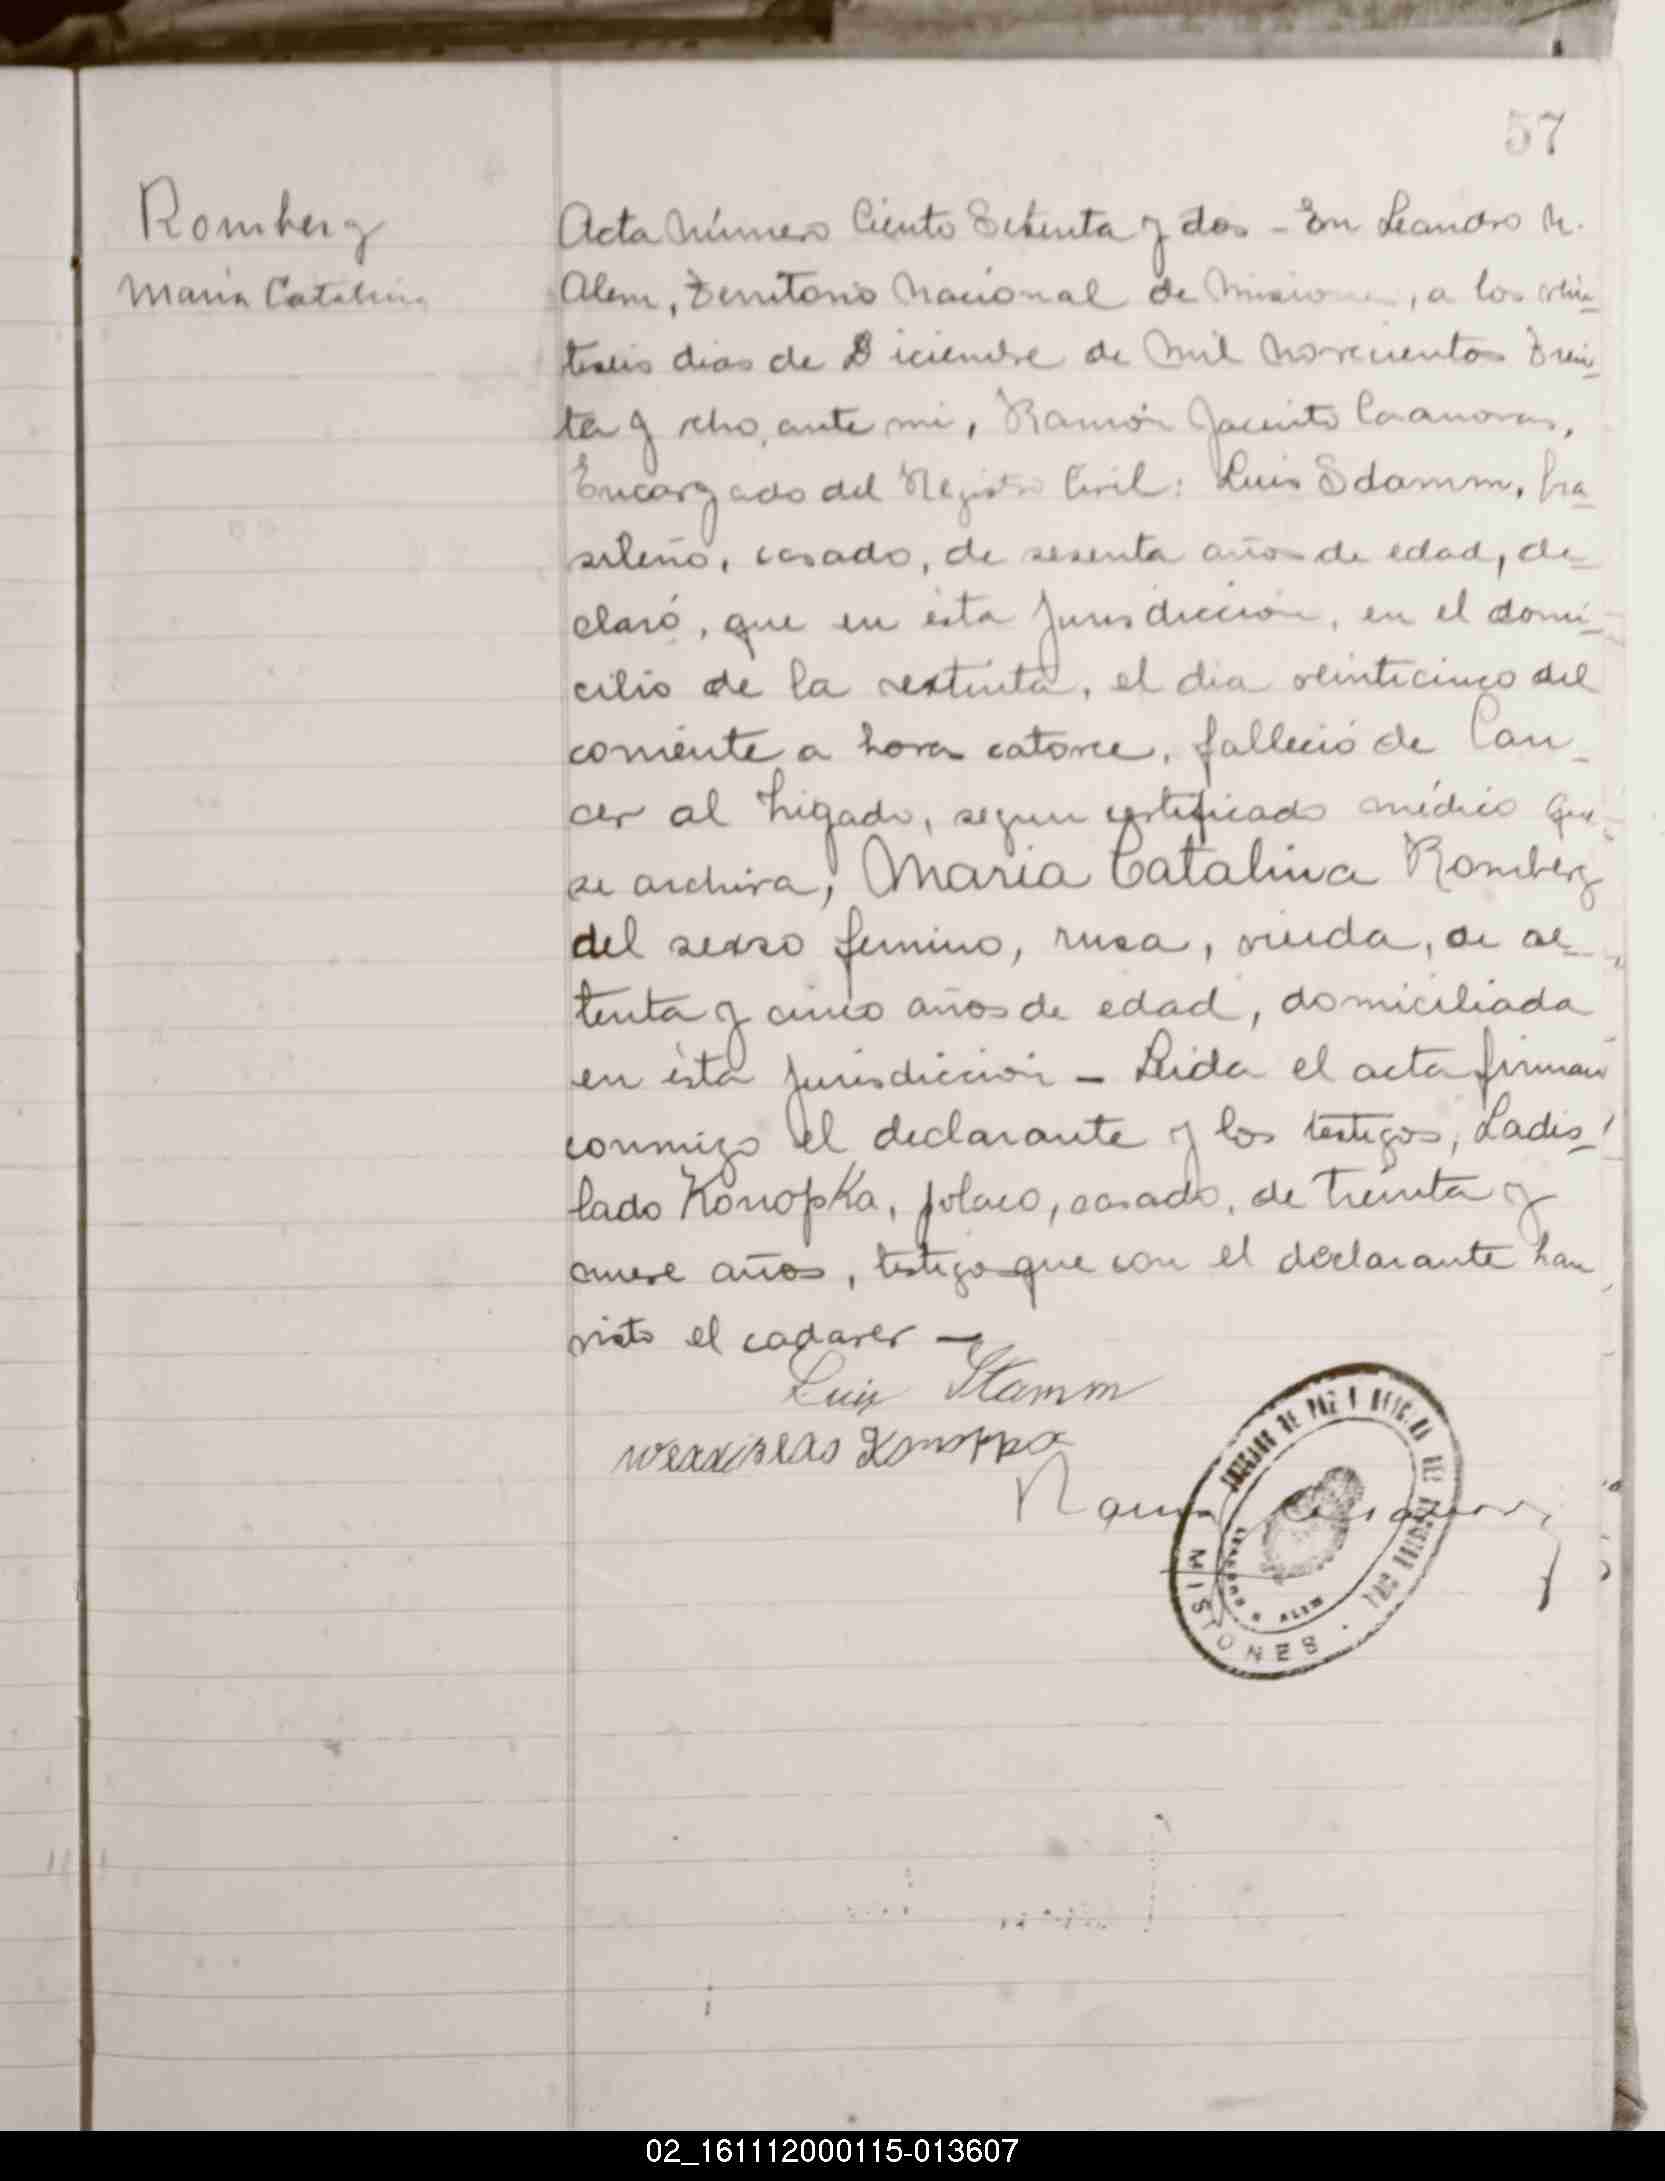 57
Romberg
Maria Catalina
Acta Número Ciento Setenta y dos - En Leandro N.
Alem, Territorio Nacional de Misiones, a los vein-
tiseis dias de Diciembre de Mil Novecientos Trein-
ta y ocho, ante mi, Ramón Jacinto Casanovas,
Encargado del Registro Civil: Luis Sdamm, bra-
sileño, casado, de sesenta años de edad, de-
claró, que en ésta Jurisdicción, en el domi-
cilio de la extinta, el dia veinticinco del
corriente a hora catorce, falleció de Can-
cer al higado, segun certificado médico que
se archiva, Maria Catalina Romberg
del sexso femino, rusa, viuda, de se-
tenta y cinco años de edad, domiciliada
en ésta Jurisdicción - Leida el acta firman
conmigo el declarante y los testigos, Ladis-
lado Konopka, polaco, casado, de treinta y
nueve años, testigos que con el declarante han
visto el cadaver -
Luis Stamm
Ramon Casanovas
JUZGADO DE PAZ Y OFICINA DEL REGISTRO CIVIL
LEANDRO N. ALEM
MISIONES
02_161112000115-013607